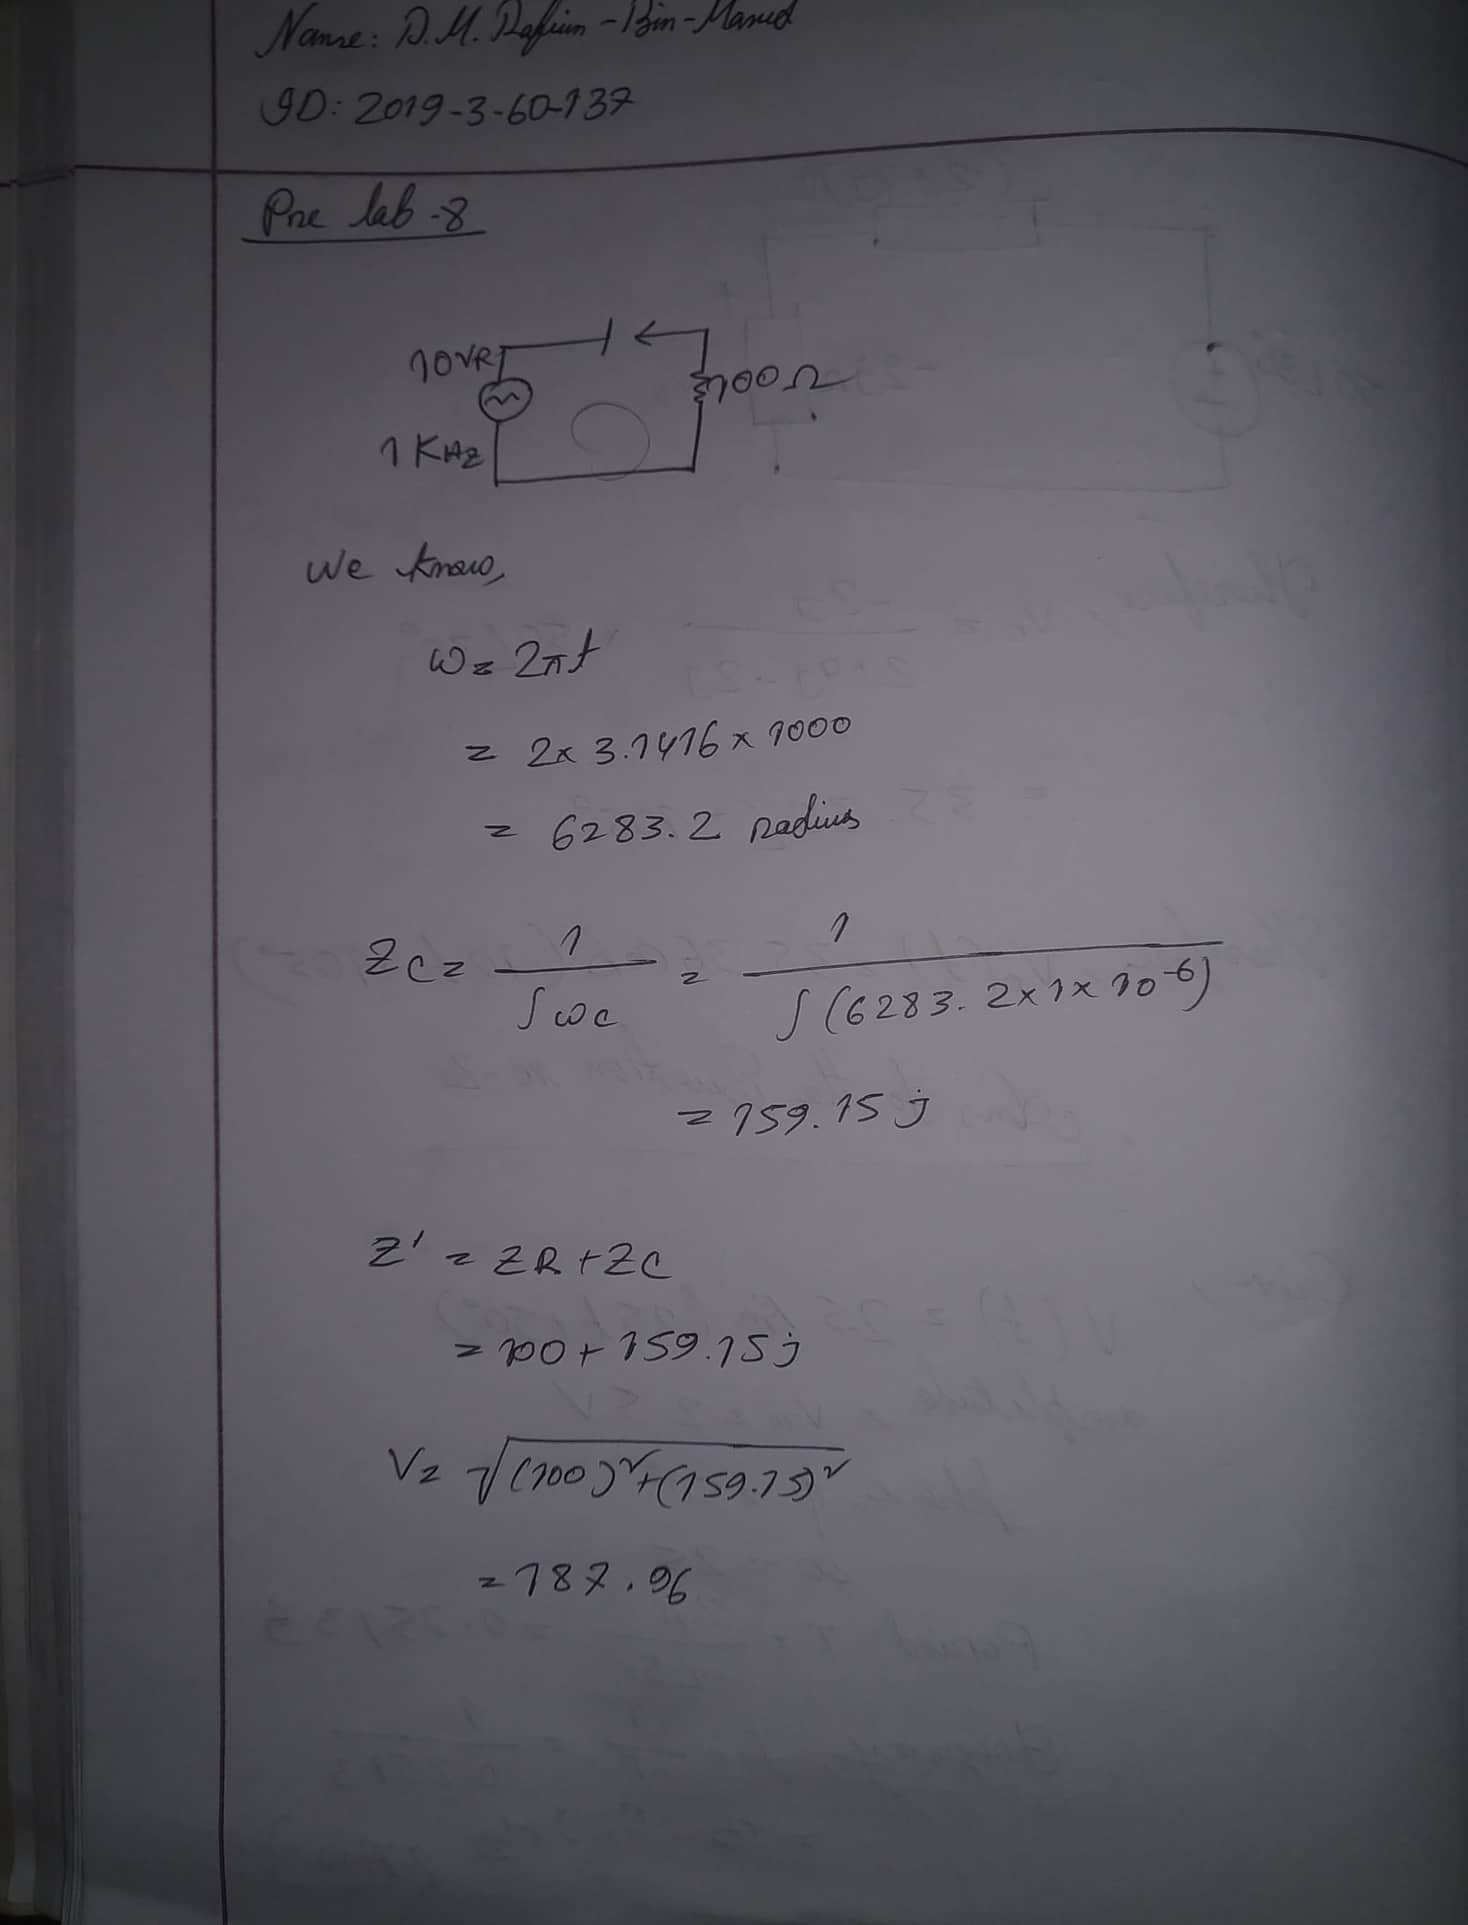 Name: D.M. Rafiun-Bin-Masud
ID: 2019-3-60-137
Pre lab-8
10VR
100Ω
1 KHz
We know,
ω = 2πf
= 2x 3.1416 x 1000
= 6283.2 radius
ZC = 1/jωc = 1/j(6283.2x1x10^-6)
= 159.15 j
Z' = ZR+ZC
= 100+159.15j
V = √(100)²+(159.15)²
= 187.96